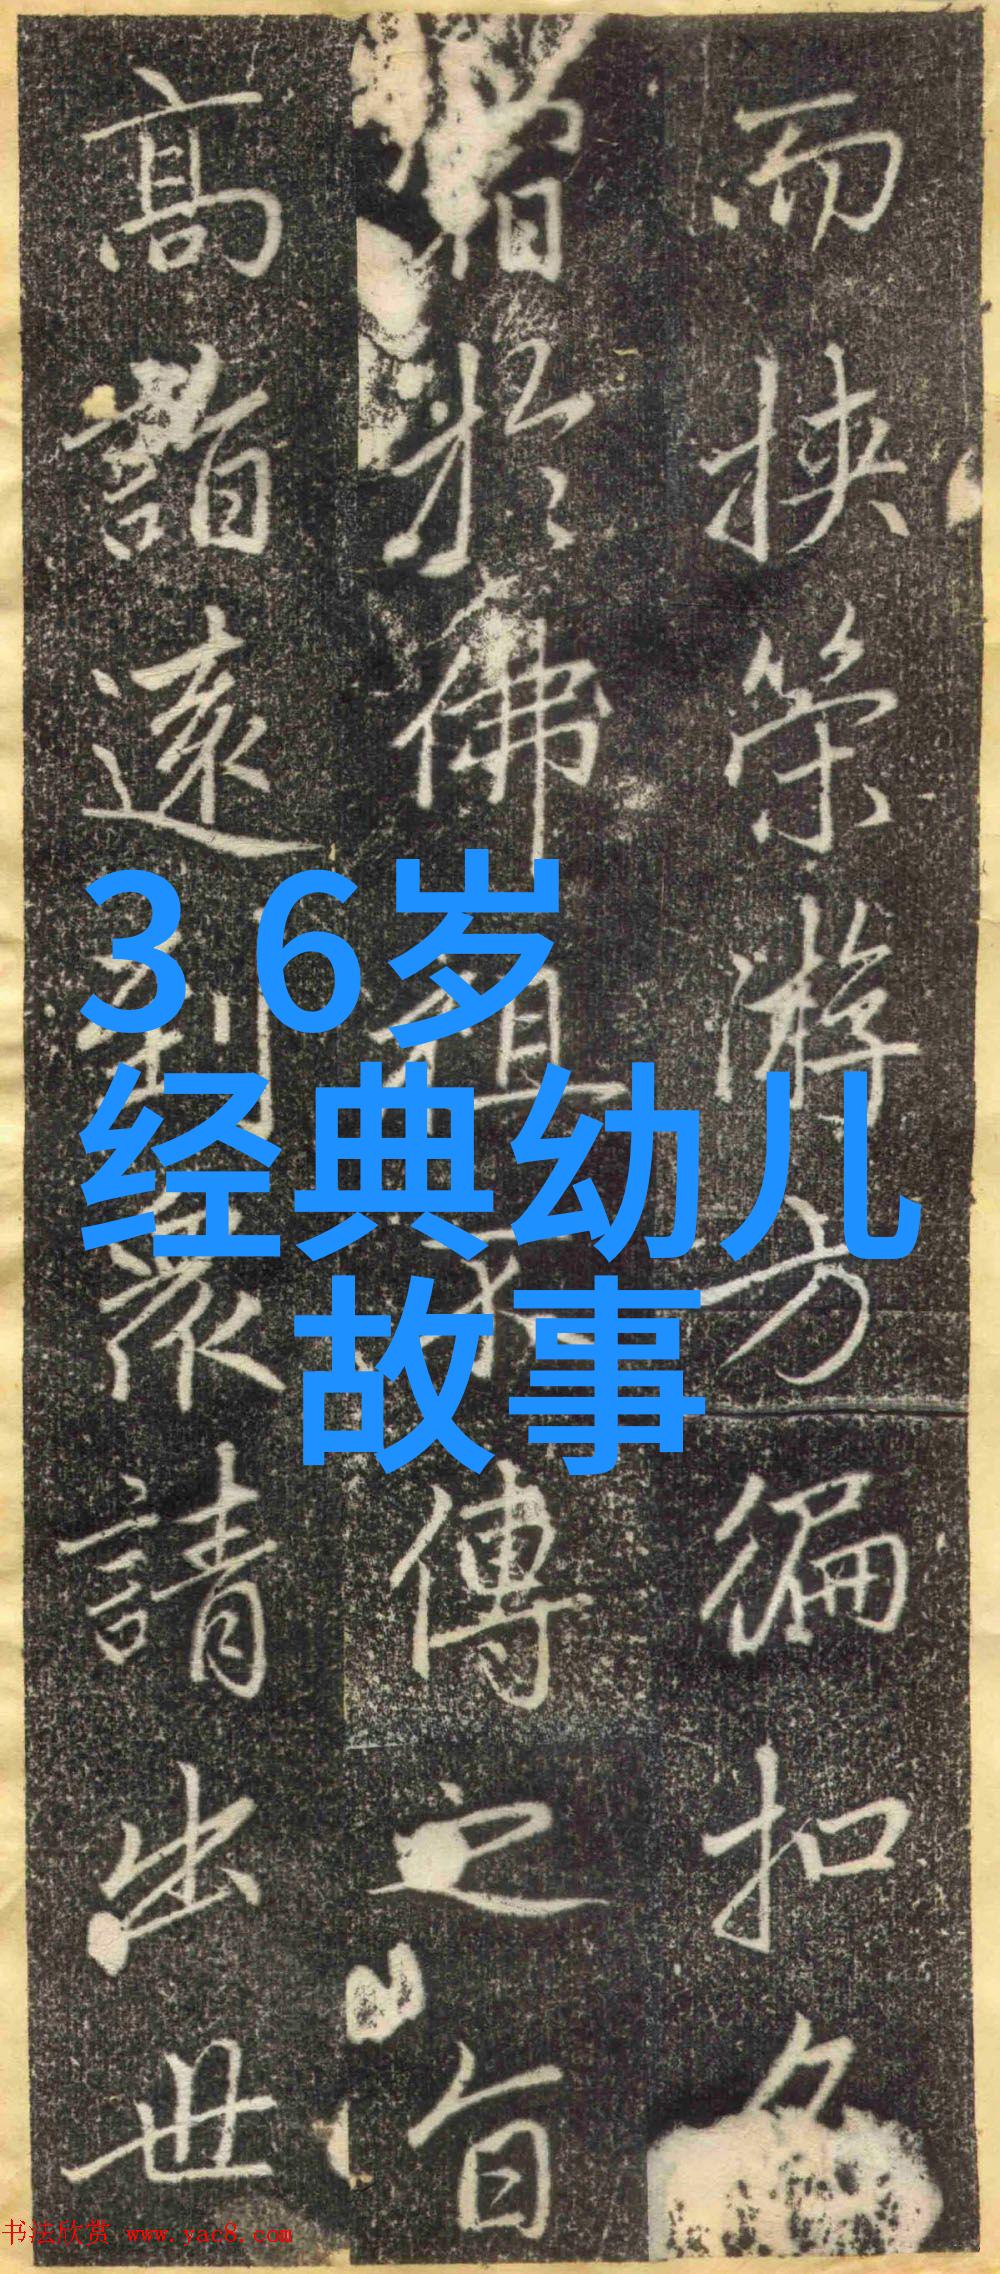 3 6岁
经典幼儿
故事
而挾策游方徧扣
於佛祖不傳之旨
高詣遠到衆請出世
书法欣赏 www.yac8.com